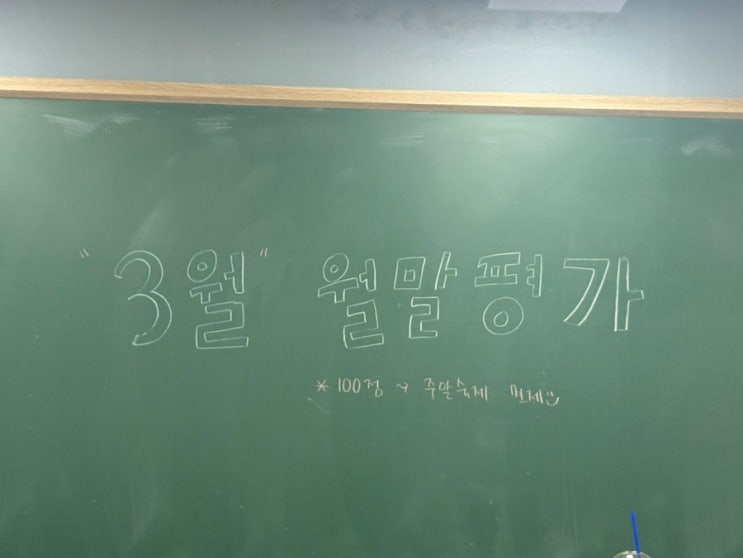 "3월" 월말평가
*100점 → 주말숙제 면제